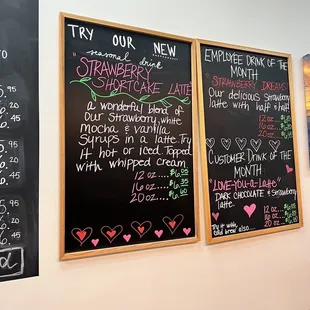 TRY OUR NEW
seasonal drink
"STRAWBERRY
SHORTCAKE LATTE"
a wonderful blend of
our Strawberry, white
mocha & vanilla
Syrups in a latte. Try
it hot or iced. Topped
with whipped cream
12 oz.....
16 oz.....
20 oz.....
EMPLOYEE DRINK OF THE
MONTH
"STRAWBERRY DREAMS"
Our delicious Strawberry
latte with half & half
12 oz
16 oz
20 oz
CUSTOMER DRINK OF
THE MONTH
"LOVE-YOU-a-LATTE"
DARK CHOCOLATE & Strawberry
latte.
12 oz
16 oz
20 oz
Try it with
cold brew also...